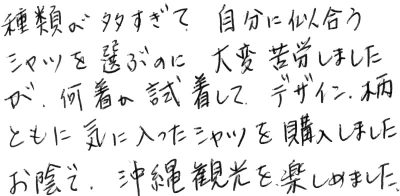 種類が多すぎて、自分に似合う
シャツを選ぶのに大変苦労しました
が、何着か試着して、デザイン、柄
ともに気に入ったシャツを購入しました
お陰で、沖縄観光を楽しめました。